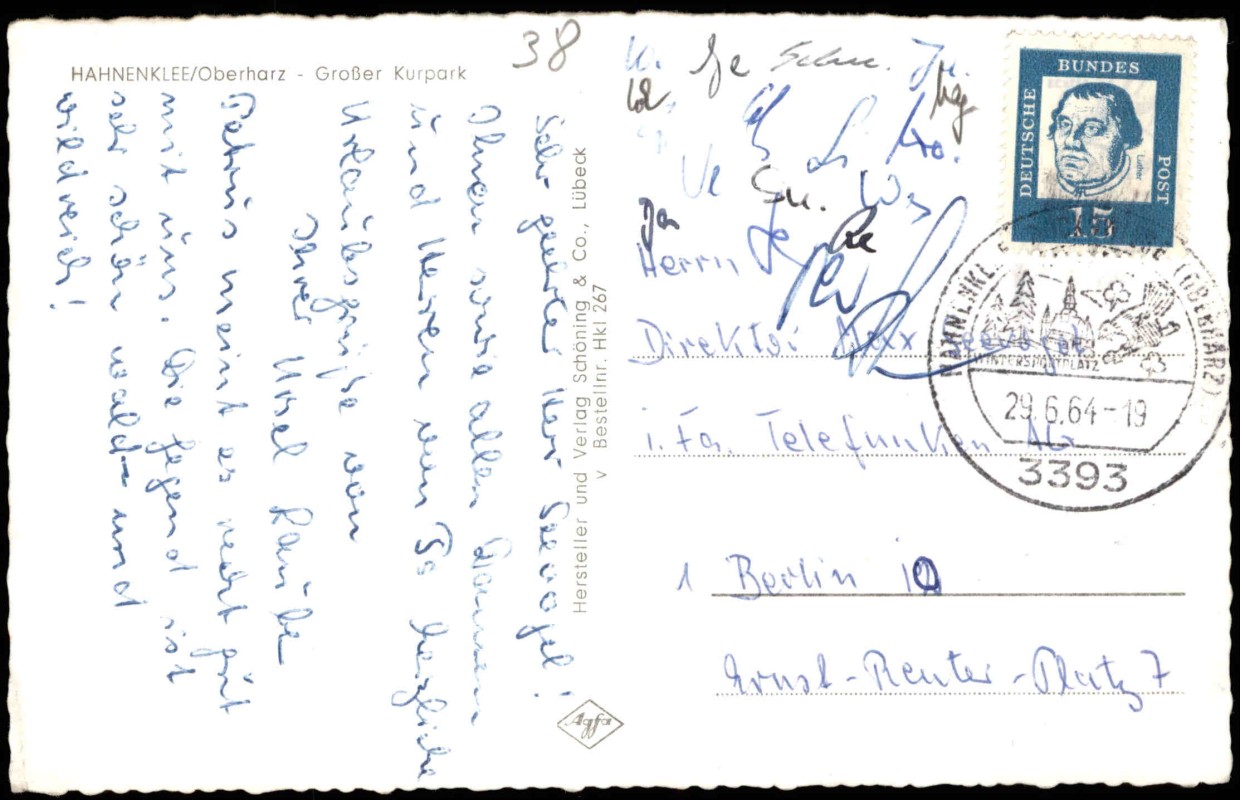 HAHNENKLEE/Oberharz - Großer Kurpark
38
Sehr geehrter Herr Seevogel!
Ihnen sowie allen Damen
und Herren von Ts herzliche
Urlaubsgrüße von
Ihrer Ursel Laube
Petrus meint es recht gut
mit uns. Die Gegend ist
sehr schön wald- und
wildreich!
Hersteller und Verlag Schöning & Co., Lübeck
v Bestellnr. Hkl 267
Agfa
Je
Ve
We
Re
DEUTSCHE
BUNDES
POST
Luther
15
HAHNENKLEE (OBERHARZ)
WINTERSPORTPLATZ
29.6.64-19
3393
Herrn
Direktor Seevogel
i. Fa. Telefunken AG
1 Berlin 10
Ernst-Reuter-Platz 7